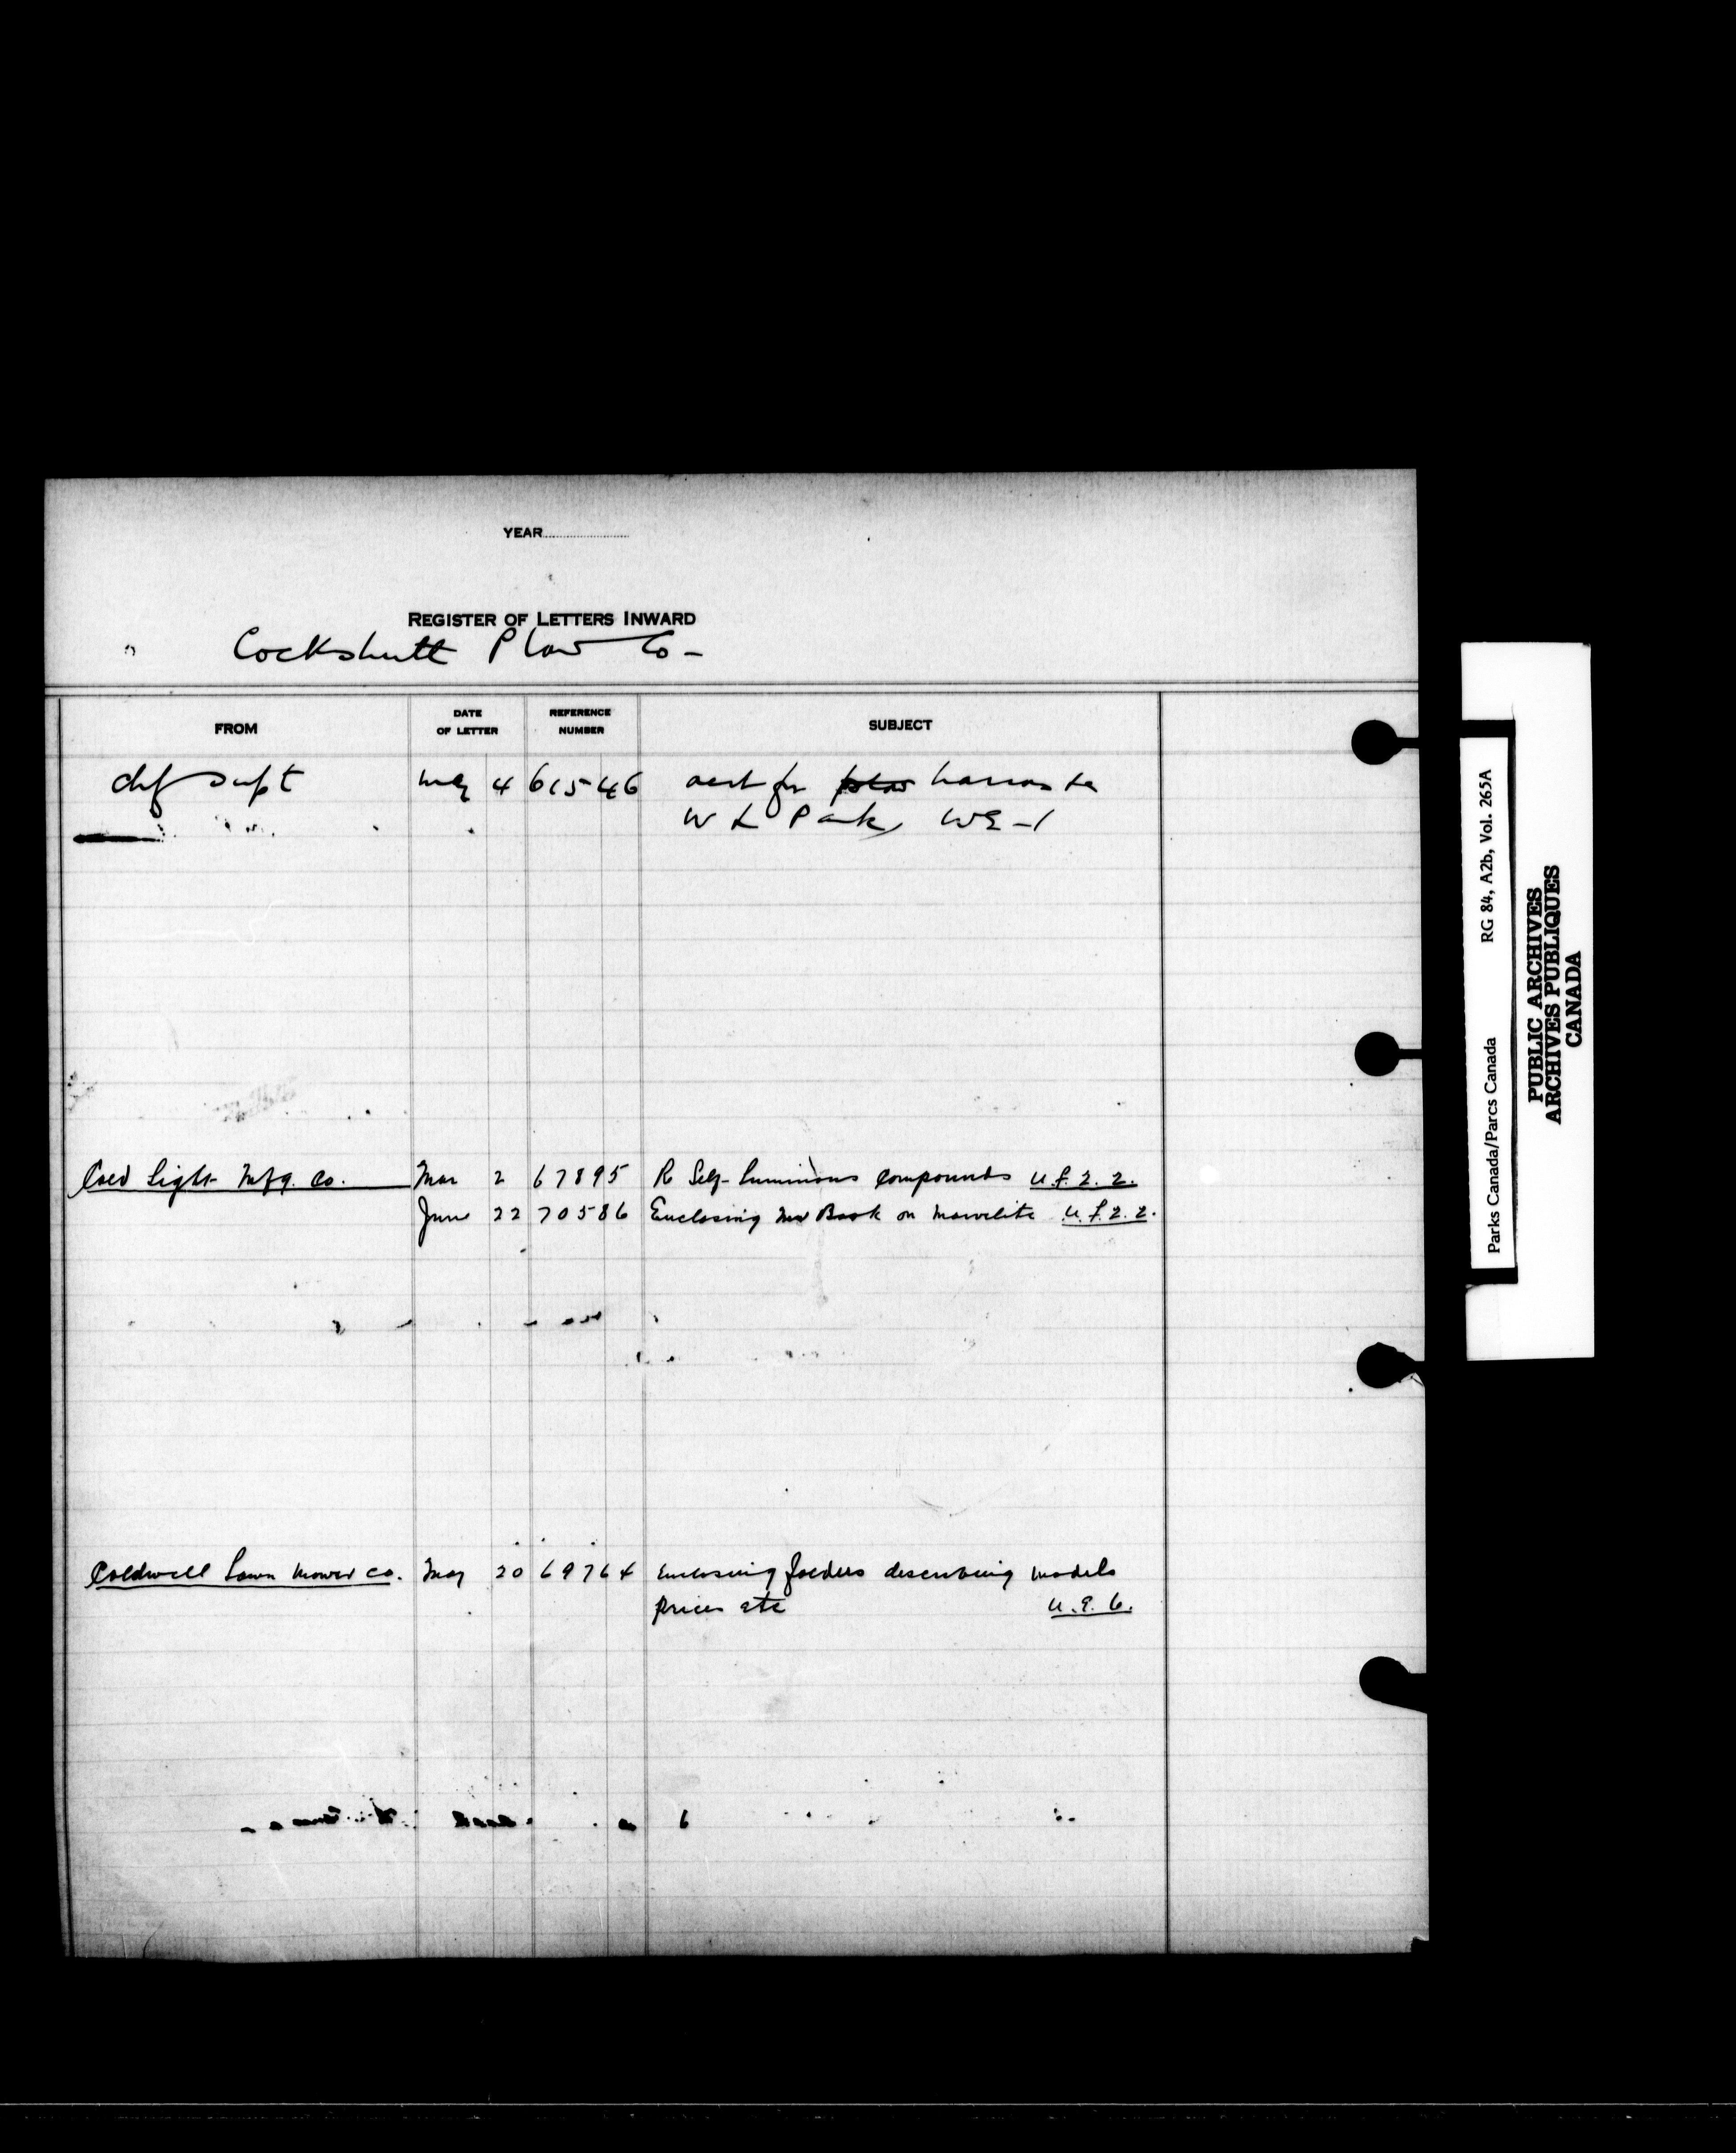 YEAR
REGISTER OF LETTERS INWARD
Cockshutt Plow Co-
FROM DATE OF LETTER REFERENCE NUMBER SUBJECT
Chf Supt May 4 61546 acct for plow harrow
W L Park WL-1
Cold Light Mfg. Co. Mar 2 67895 R Self-Luminous Compounds U.L.2.2.
June 22 70586 Enclosing Book on Marvelite U.L.2.2.
Coldwell Lawn Mower Co. May 20 69764 Enclosing folders describing models
prices etc U.E.6.
Parks Canada/Parcs Canada RG 84, A2b, Vol. 265A
PUBLIC ARCHIVES
ARCHIVES PUBLIQUES
CANADA